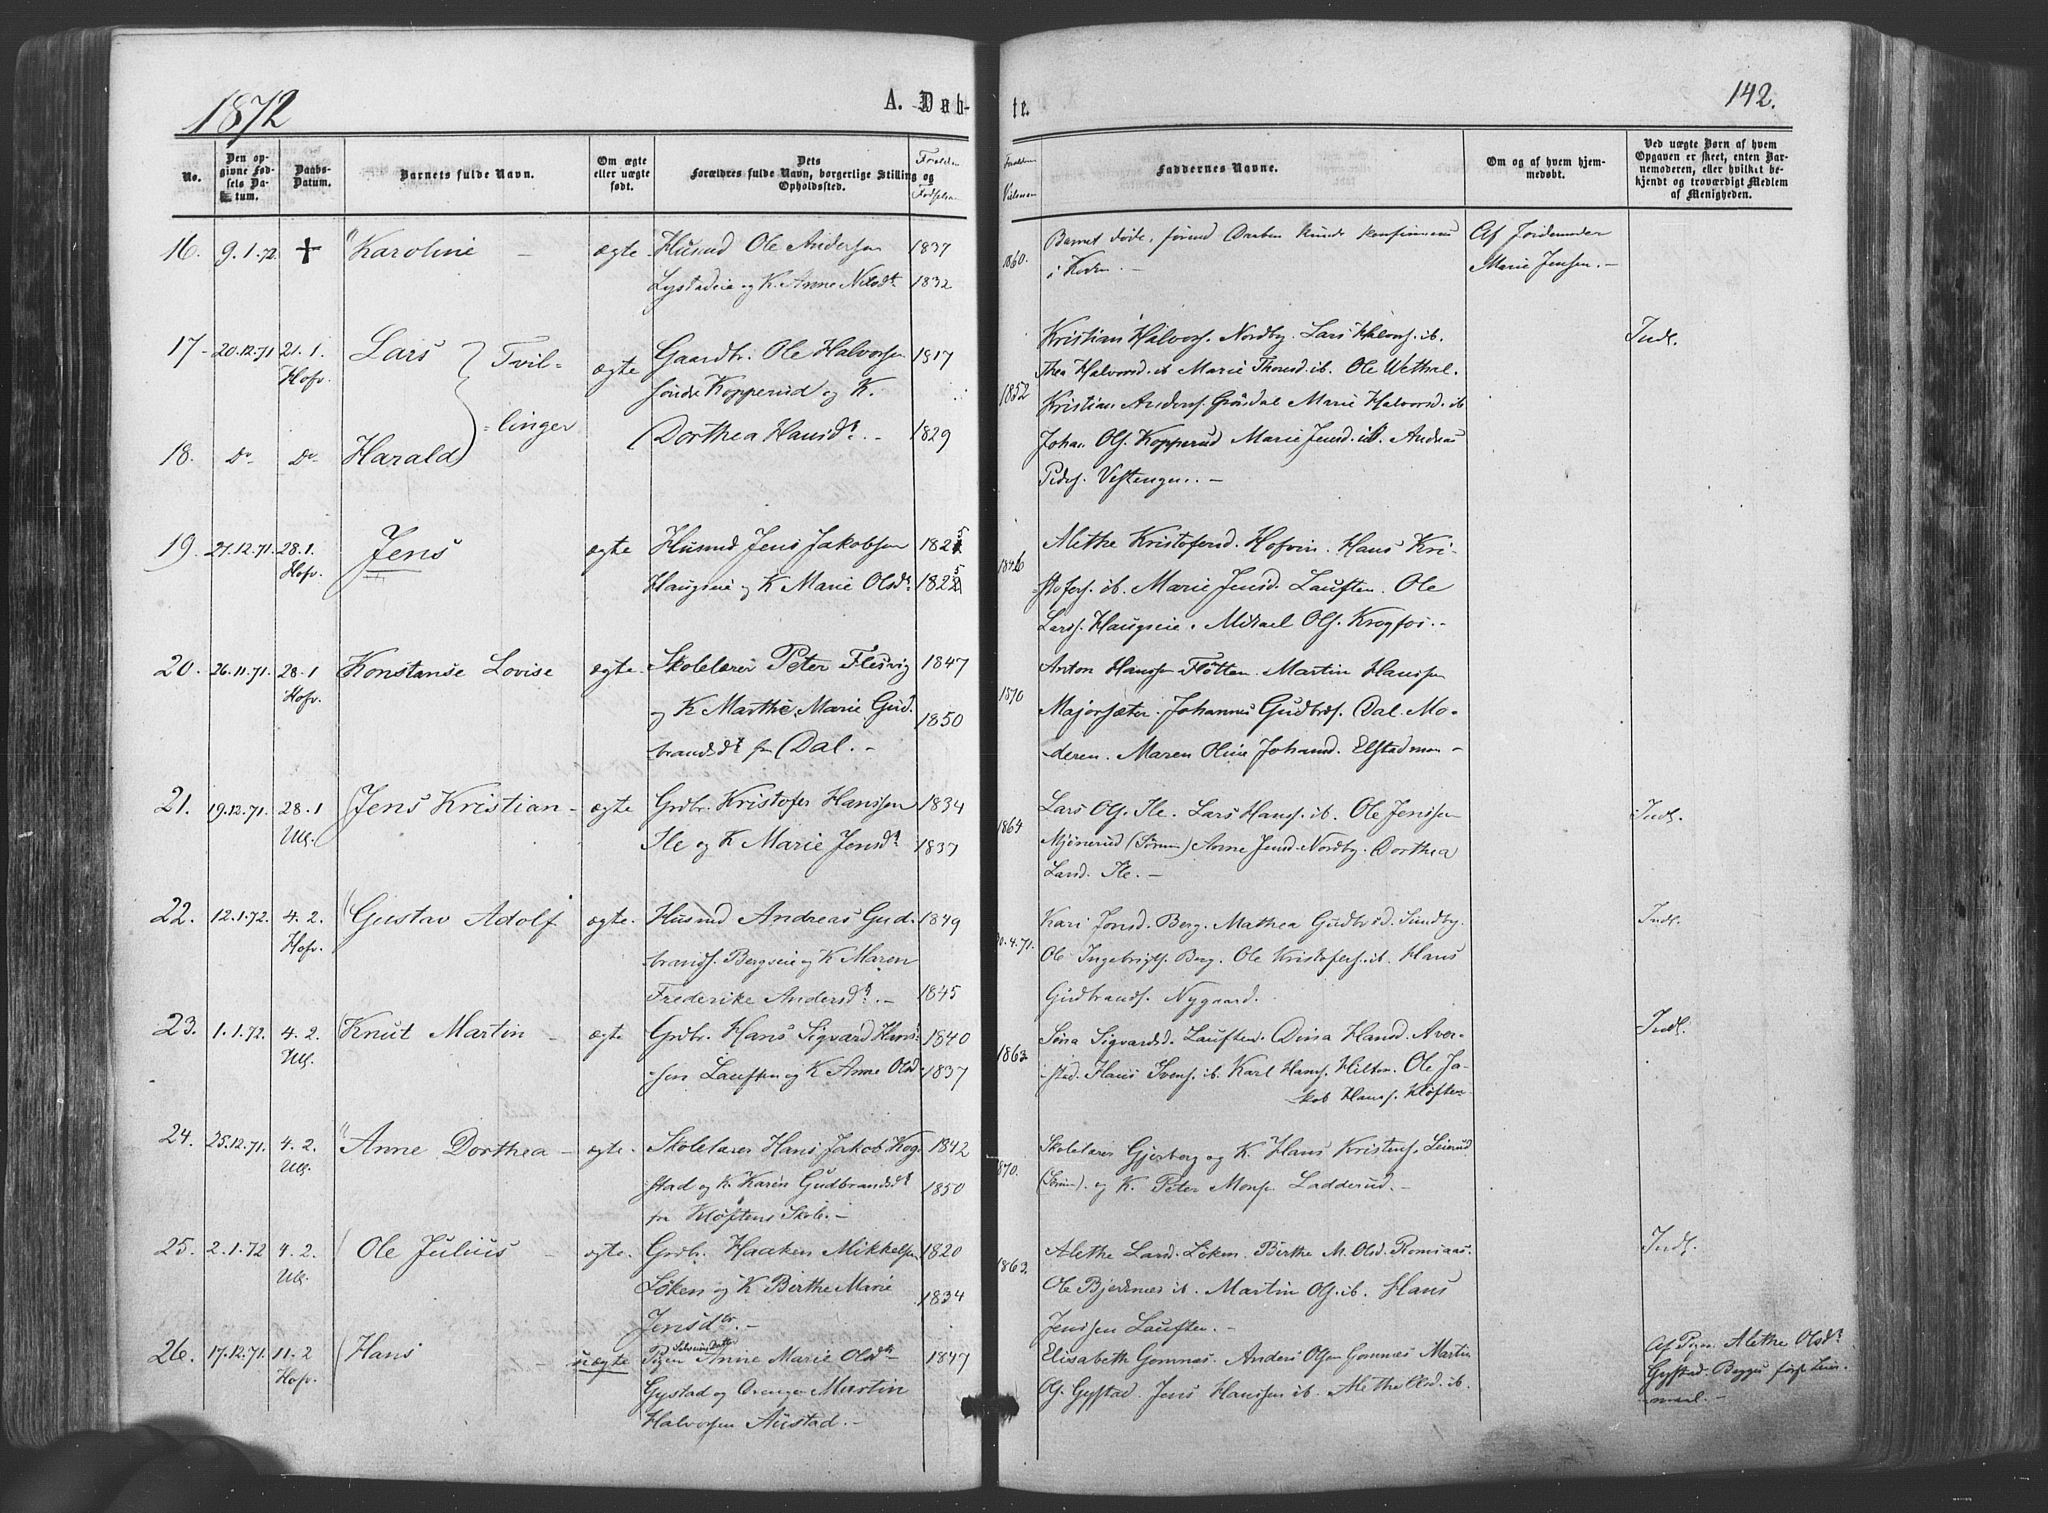 1872
A. Døb-
te.
142.
No.
Den op-
givne Fød-
sels Da-
tum.
Daabs-
Datum.
Barnets fulde Navn.
Om ægte
eller uægte
født.
Dets
Forældres fulde Navn, borgerlige Stilling og
Opholdssted.
Faddernes Navne.
Om og af hvem hjem-
medøbt.
Ved uægte Børn af hvem
Opgaven er skeet, enten Bar-
nemoderen, eller hvilket be-
kjendt og troværdigt Medlem
af Menigheden.
16. 9.1.72 + Karoline – ægte Husmd Ole Andersen 1837
Lystadeie og K. Anne Nilsdr 1832
1860.
Barnet døde, førend Daaben kunde
i Kirken. –
Af Jordemoder
Marie Jensen. –
17 20.12.71 21.1. Hofv. Lars Tvil- ægte Gaardbr. Ole Halvorsen 1817
søndre Kopperud og K.
linger Dorthea Hansdr. – 1829
18. Do Do Harald
1852
Kristian Halvors. Nordby. Lars Halvors. ib.
Thea Halvorsd. ib Marie Thorsd. ib. Ole Wethal.
Kristian Anders. Grøsdal Marie Halvorsd. ib
Johan Ols. Kopperud Marie Jensd. ib. Andreas
Peders. Vestengen. –
Indl.
19. 27.12.71. 28.1. Hofv. Jens ægte Husmd Jens Jakobsen 1825
Haugseie og K Marie Olsdr 1825
1846
Alethe Kristofersd. Hofvin. Hans Kri-
stofers. ib. Marie Jensd. Lauften. Ole
Larss. Haugseie. Mikael Ols. Krogfos. –
20. 26.11.71. 28.1 Hofv. Konstanse Lovise ægte Skolelærer Peter Flesvig 1847
og K Marthe Marie Gud- 1850
brandsdr fra Dal. –
1870
Anton Hanssen Fløtten. Martin Hanssen
Majorsæter. Johannes Gudbrds. Dal. Mo-
deren. Maren Oline Johansd. Elstad
21. 19.12.71. 28.1 Ull. Jens Kristian – ægte Grdbr. Kristofer Hanssen 1834
Ile og K Marie Jensdr 1837
1864
Lars Ols. Ile. Lars Hanss. ib. Ole Jenssen
Mjønerud (Sørum) Anne Jensd. Nordby. Dorthea
Larsd. Ile. –
Indl.
22. 12.1.72. 4.2. Hofv. Gustav Adolf ægte. Husmd Andreas Gud- 1849
brands. Bergseie og K Maren
Frederike Andersdr. – 1845
30.4.71.
Kari Jonsd. Berg. Mathea Gudbrsd. Sundby.
Ole Ingebrigts. Berg. Ole Kristofers. ib. Hans
Gudbrands. Nygaard.
Indl.
23. 1.1.72. 4.2. Ull. Knut Martin – ægte Grdbr. Hans Sigvard Hans- 1840
sen Lauften og K Anne Olsd 1837
1863.
Sina Sigvardsd. Lauften. Dina Hansd. Aver-
stad. Hans Svens. ib. Karl Hans. Hilton. Ole Ja-
kob Hanss. Kløften.
Indl.
24. 25.12.71. 4.2. Ull. Anne Dorthea – ægte. Skolelærer Hans Jakob Kog- 1842
stad og K Karen Gudbrandsdr 1850
fra Kløftens Skole. –
1870.
Skolelærer Gjerberg og K. Hans Kristens. Leierud
(Sørum). og K. Peter Mons. Ladderud. –
25. 2.1.72 4.2. Ull. Ole Julius – ægte. Grdbr. Haaken Mikkelsen 1820
Løken og K Birthe Marie 1834
Jensdtr. –
1863.
Alethe Larsd. Løken. Birthe M. Olsd. Romsaas.
Ole Bjerknes ib. Martin Ols. ib. Hans
Jenssen Lauften. –
Indl.
26. 17.12.71. 11.2 Hofv. Hans uægte Pigen Anne Marie Olsdtr 1847
Gystad og Martin
Halvorsen Austad. –
Elisabeth Gomnæs. Anders Olsen Gomnæs Martin
Ols. Gystad. Jens Hanssen ib. Alethe Olsd. ib.
Af Pigen Alethe Olsdr
Gystad. Begges første Leier-
maal. –